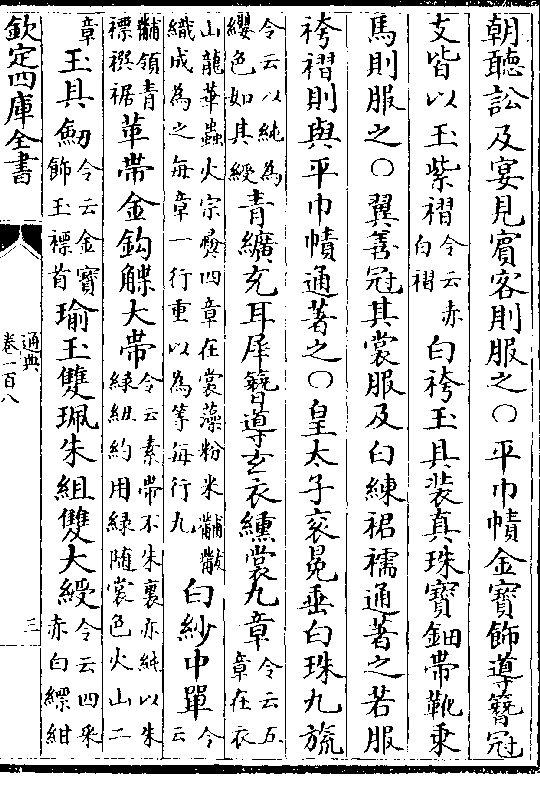 朝聽訟及宴見賓客則服之○平巾幘金寶飾導簪冠
支皆以玉紫褶令云赤白褶白袴玉具裝真珠寶鈿帶靴乗
馬則服之○翼善冠其裳服及白練裙襦通著之若服
袴褶則與平巾幘通著之○皇太子衮冕垂白珠九旒
令云以純為纓色如其綬青纊充耳犀簪導玄衣纁裳九章令云五章在衣
山龍華蟲火宗彝四章在裳藻粉米黼黻織成為之每章一行重以為等每行九白紗中單令云
黼領青褾襈裾革帶金鈎䚢大帶令云素帶不朱裏亦純以朱緑組約用緑隨裳色火山二
章玉具劒令云金寶飾玉褾首瑜玉雙珮朱組雙大綬令云四采赤白縹紺
欽定四庫全書
通典
卷一百八
三